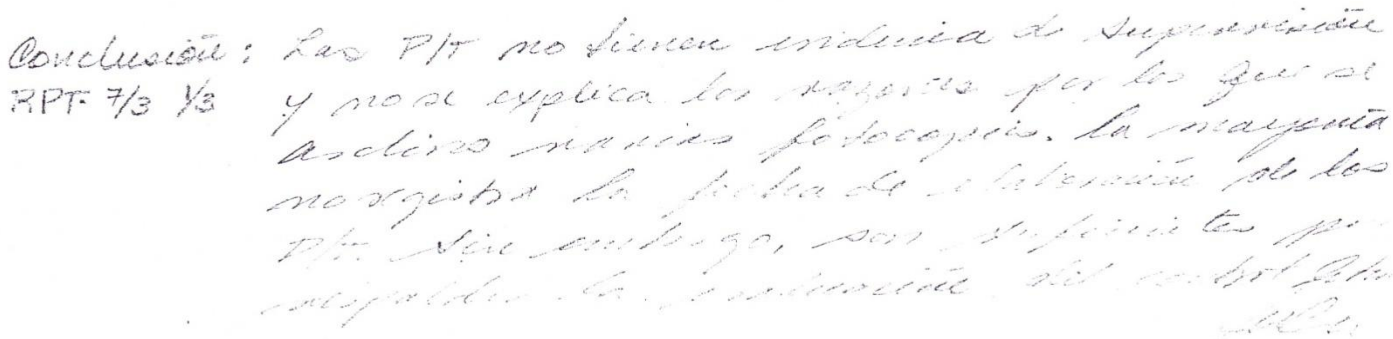 Conclusión: Los P/T no tienen evidencia de supervisión
RPT- 7/3 1/3 y no se explica las razones por las que se
archivo varias fotocopias. La mayoría
no registra la fecha de elaboración de los
P/T. Sin embargo, son suficientes
respaldar la evaluación del control